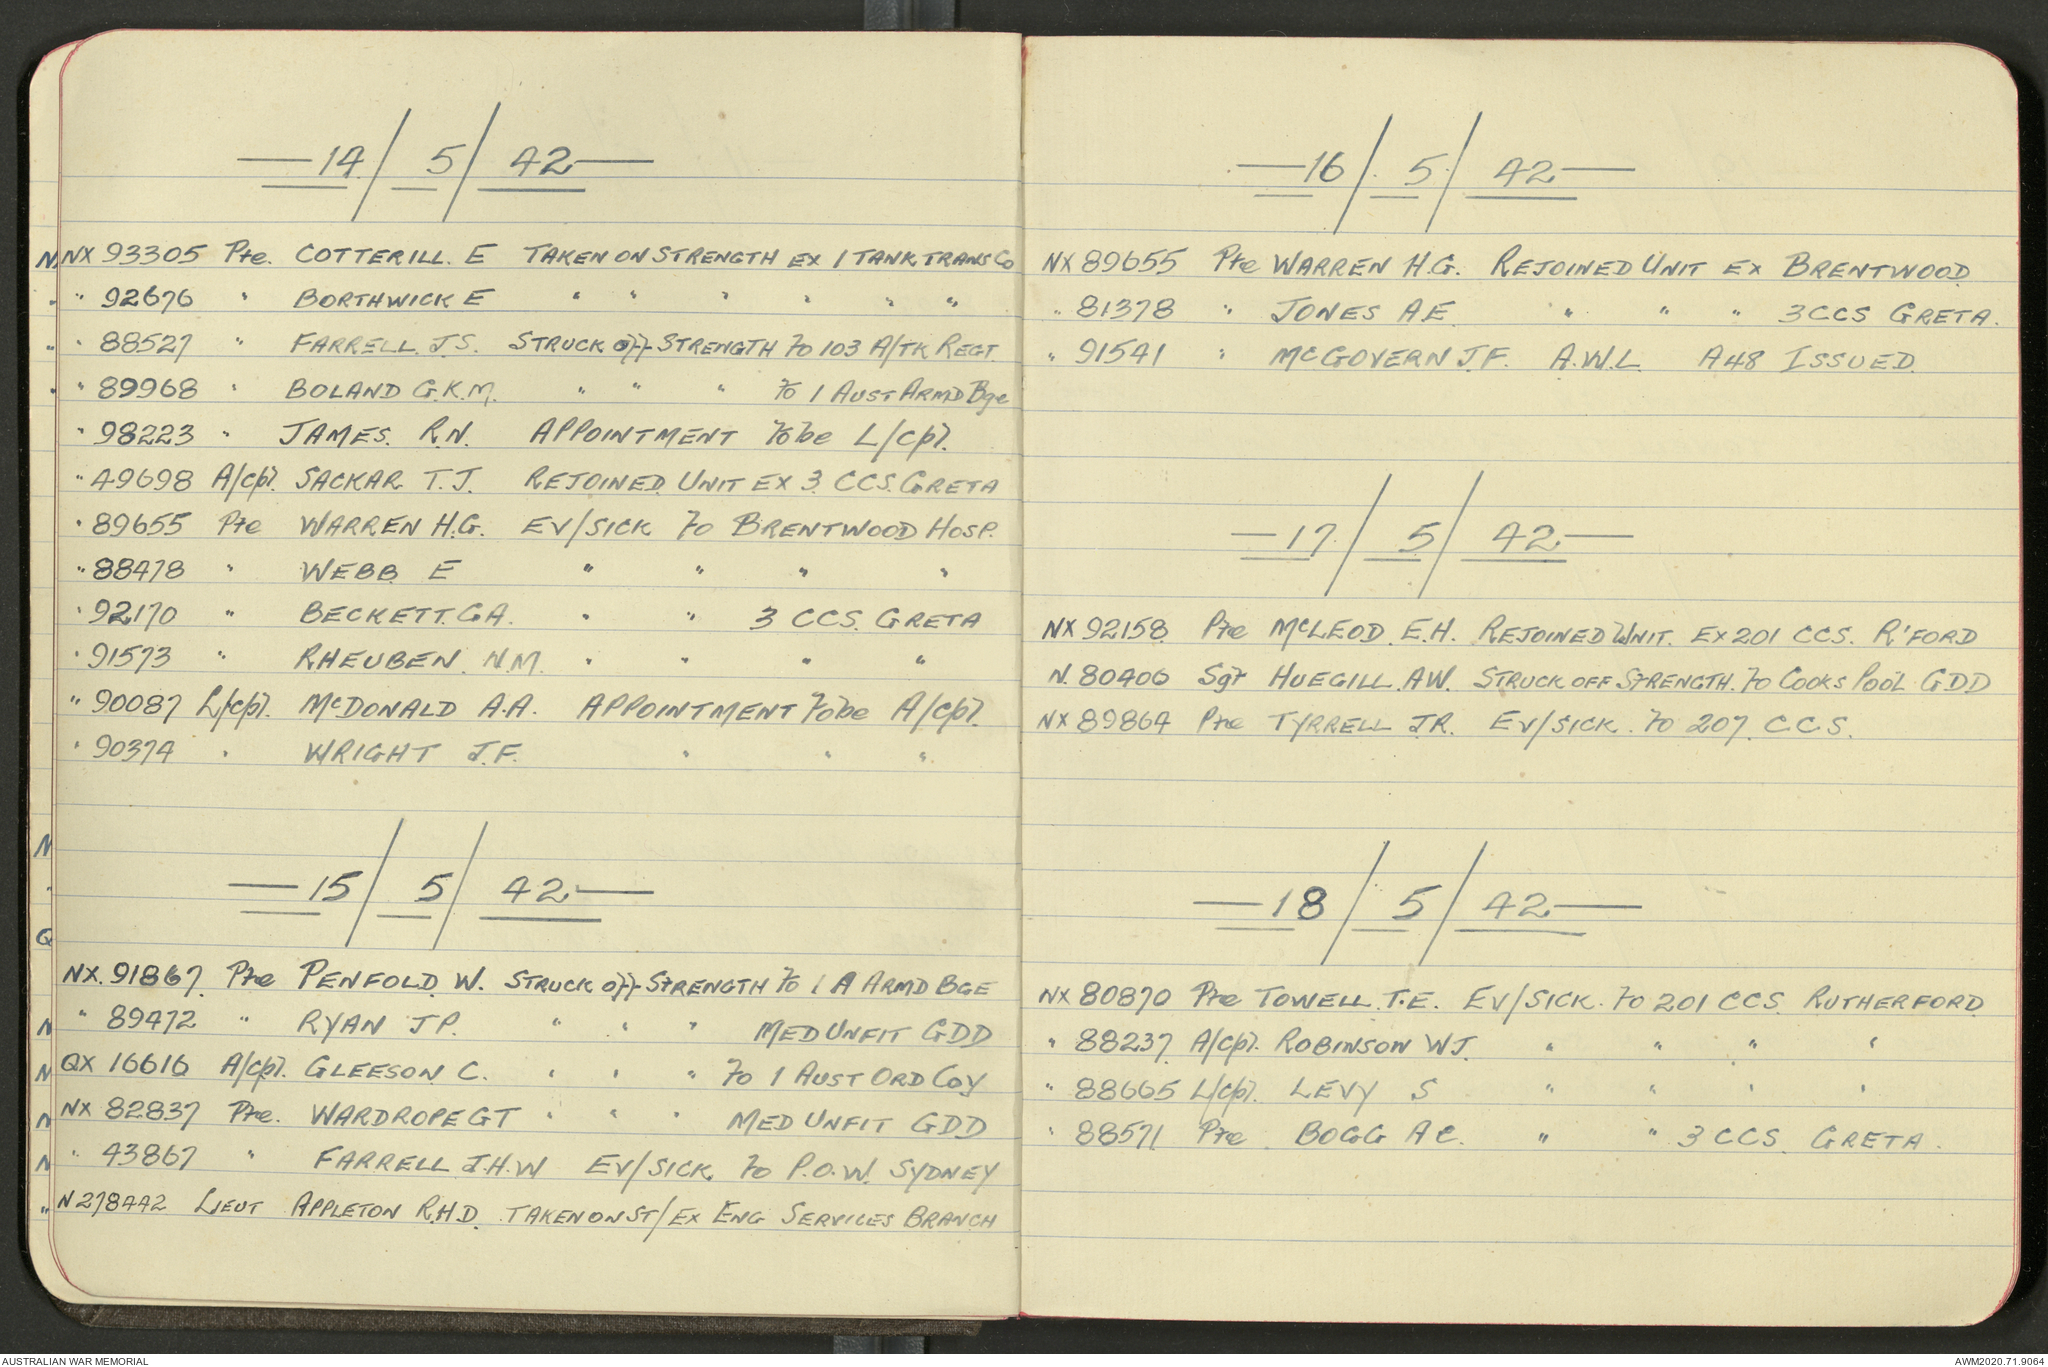 14/5/42
NX 93305 Pte. COTTERILL. E TAKEN ON STRENGTH EX 1 TANK TRANS Co
" 92676 " BORTHWICK E " " " " " "
" 88527 " FARRELL. J.S. STRUCK off STRENGTH to 103 A/TK REGT
" 89968 " BOLAND G.K.M. " " " to 1 AUST ARMD Bge
" 98223 " JAMES. R.N. APPOINTMENT to be L/cpl.
" 49698 A/cpl. SACKAR T.J. REJOINED UNIT EX 3 CCS. GRETA
" 89655 Pte WARREN H.G. EV/SICK to BRENTWOOD HOSP.
" 88478 " WEBB E " " " "
" 92170 " BECKETT. G.A. " " 3 CCS. GRETA
" 91573 " RHEUBEN. N.M. " " " "
" 90087 L/cpl. McDONALD A.A. APPOINTMENT to be A/cpl.
" 90374 " WRIGHT J.F. " " "
15/5/42
NX. 91867 Pte PENFOLD W. STRUCK off STRENGTH to 1 A ARMD BGE
" 89472 " RYAN J P. " " " MED UNFIT GDD
QX 16616 A/cpl. GLEESON C. " " " to 1 AUST ORD COY
NX 82837 Pte. WARDROPE GT " " " MED UNFIT GDD
" 43867 " FARRELL J.H.W EV/SICK to P.O.W. SYDNEY
N278442 LIEUT APPLETON R.H.D. TAKEN ON ST/ EX ENG SERVICES BRANCH
16/5/42
NX 89655 Pte WARREN H.G. REJOINED UNIT EX BRENTWOOD
" 81378 " JONES A E. " " " 3 CCS GRETA.
" 91541 " McGOVERN J.F. A.W.L. A48 ISSUED.
17/5/42
NX 92158 Pte McLEOD. E.H. REJOINED UNIT. EX 201 CCS. R'FORD
N. 80406 Sgt HUEGILL. AW. STRUCK OFF STRENGTH. to COOKS POOL GDD
NX 89864 Pte TYRRELL J.R. EV/SICK. to 207. C.C.S.
18/5/42
NX 80870 Pte TOWELL. T.E. EV/SICK. to 201 CCS. RUTHERFORD
" 88237 A/cpl. ROBINSON WJ. " " " "
" 88665 L/cpl. LEVY S " " " "
" 88571 Pte BOGG A C. " " 3 CCS. GRETA.
AUSTRALIAN WAR MEMORIAL
AWM2020.71.9064